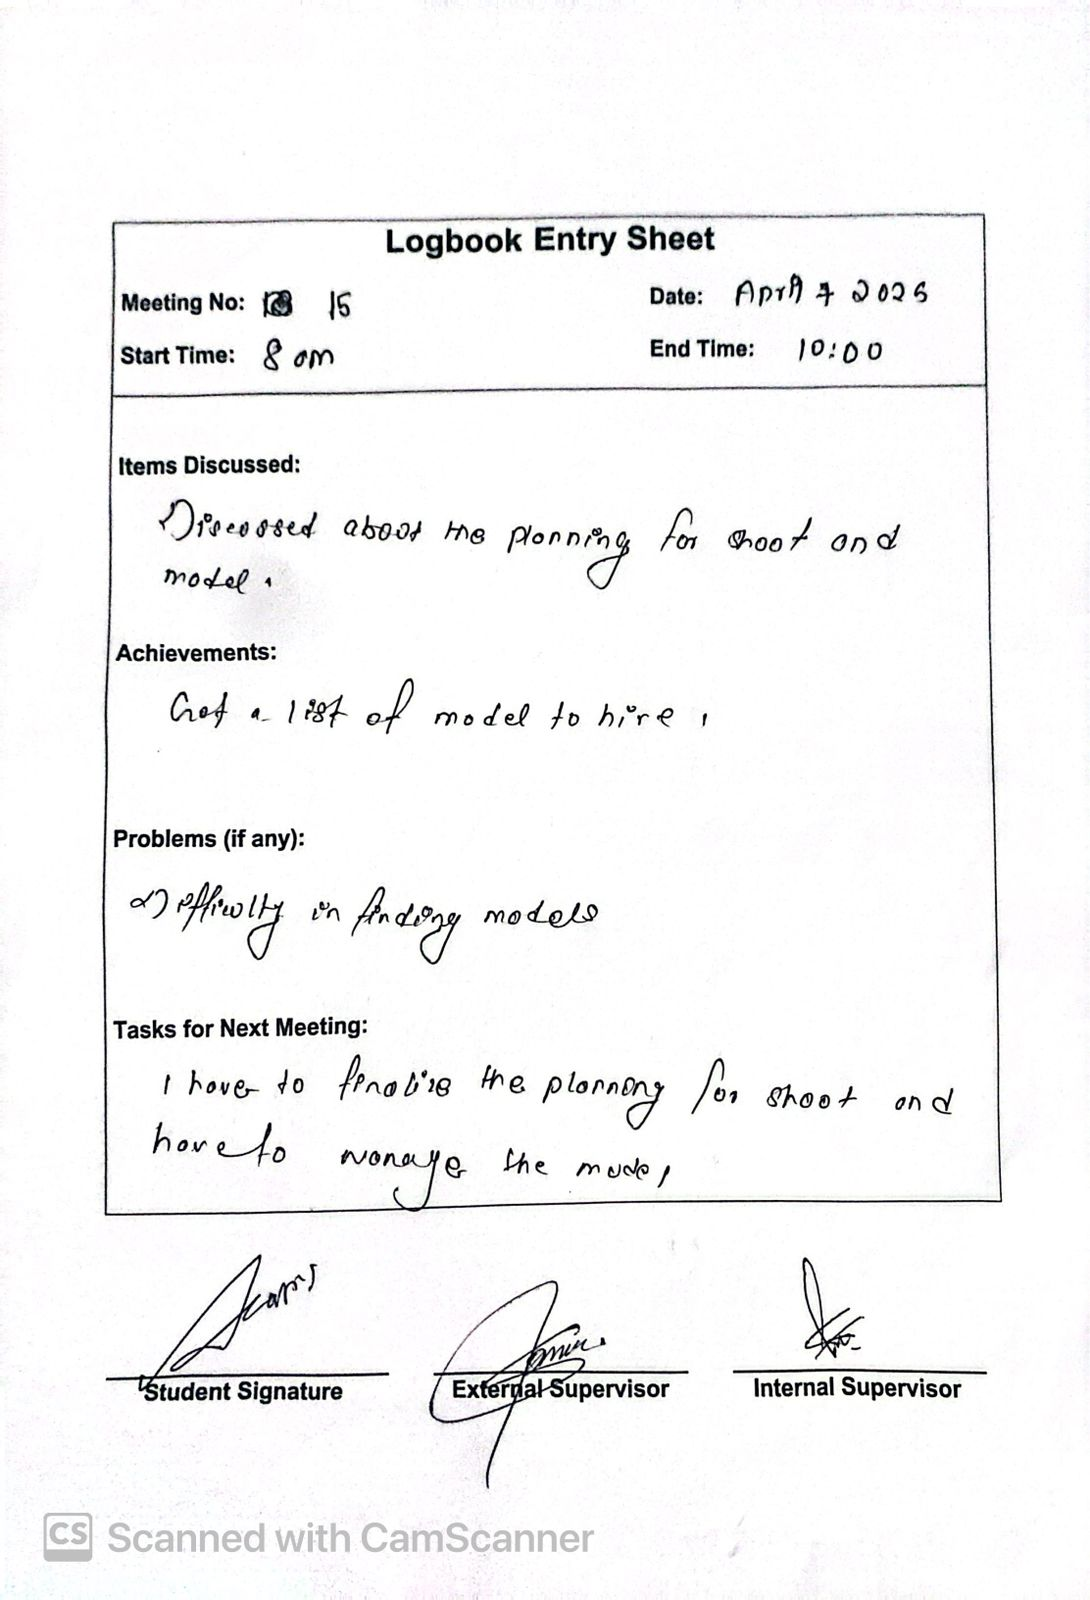 Logbook Entry Sheet
Meeting No: 15
Date: April 7 2025
Start Time: 8 am
End Time: 10:00
Items Discussed:
Discussed about the planning for shoot and
model.
Achievements:
Got a list of model to hire,
Problems (if any):
Difficulty in finding models
Tasks for Next Meeting:
I have to finalize the planning for shoot and
have to manage the model,
Student Signature
External Supervisor
Internal Supervisor
CS Scanned with CamScanner